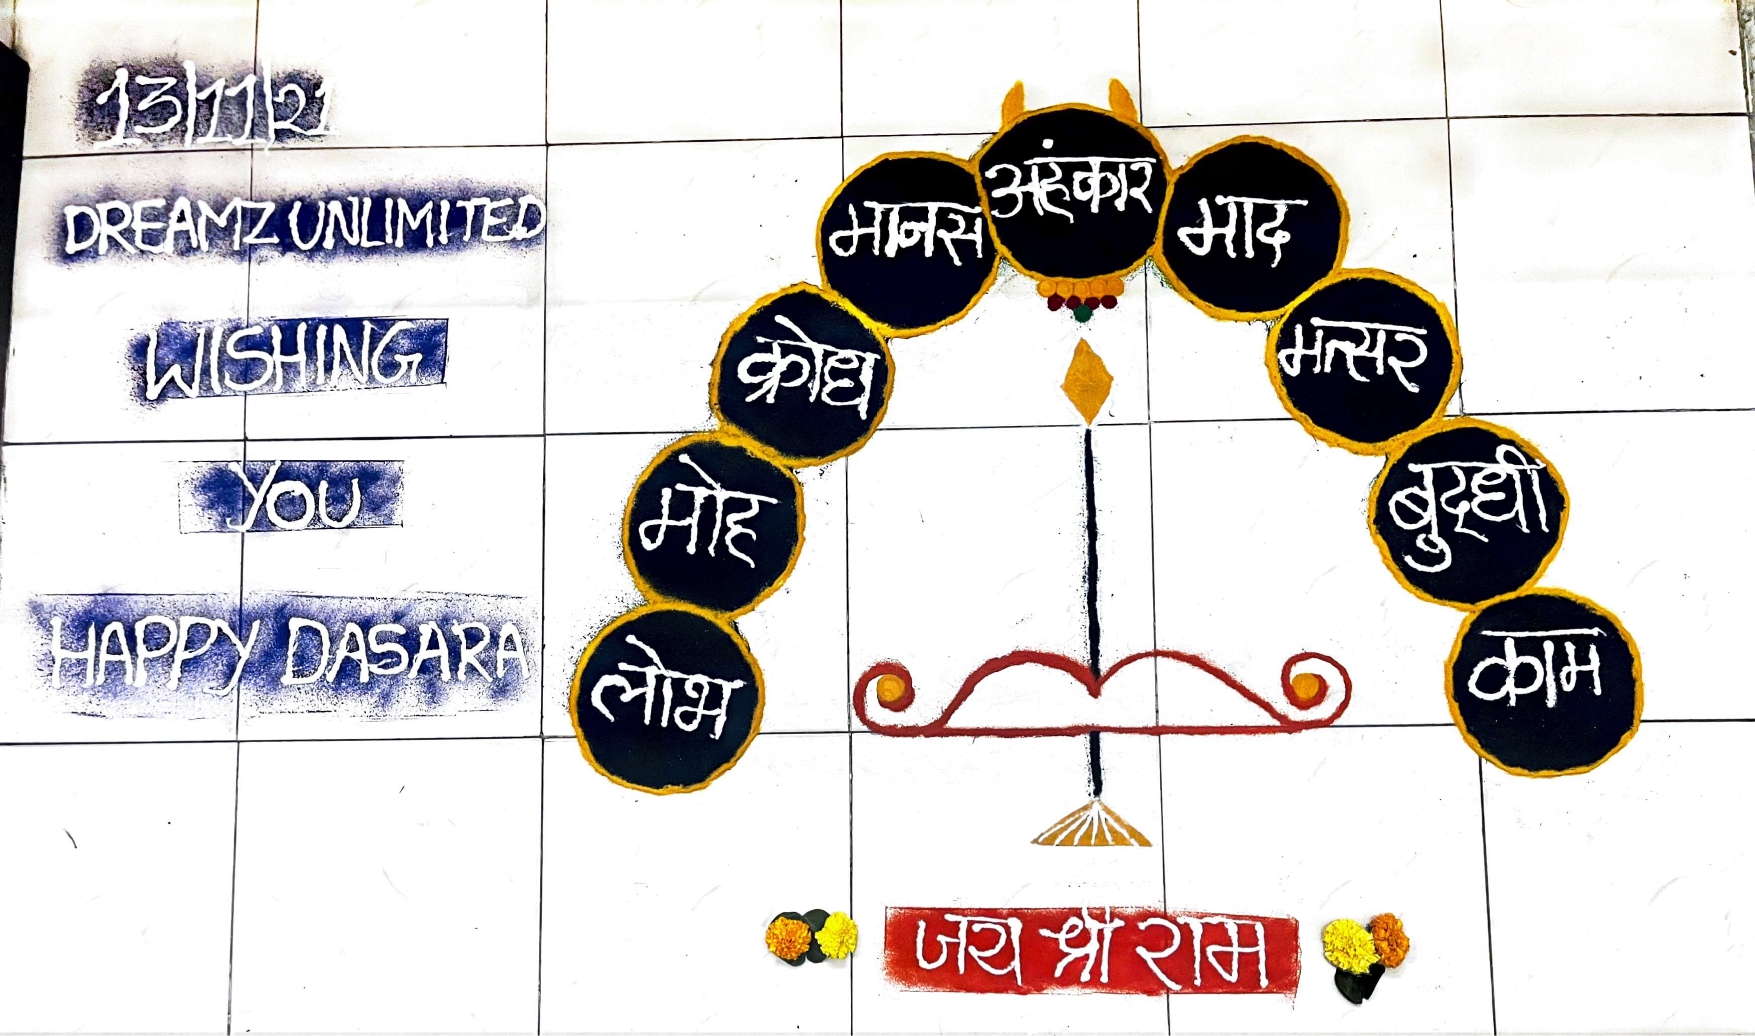 13/11/21
DREAMZ UNLIMITED
WISHING
YOU
HAPPY DASARA
लोभ
मोह
क्रोध
मानस
अंहकार
माद
मत्सर
बुद्धी
काम
जय श्री राम